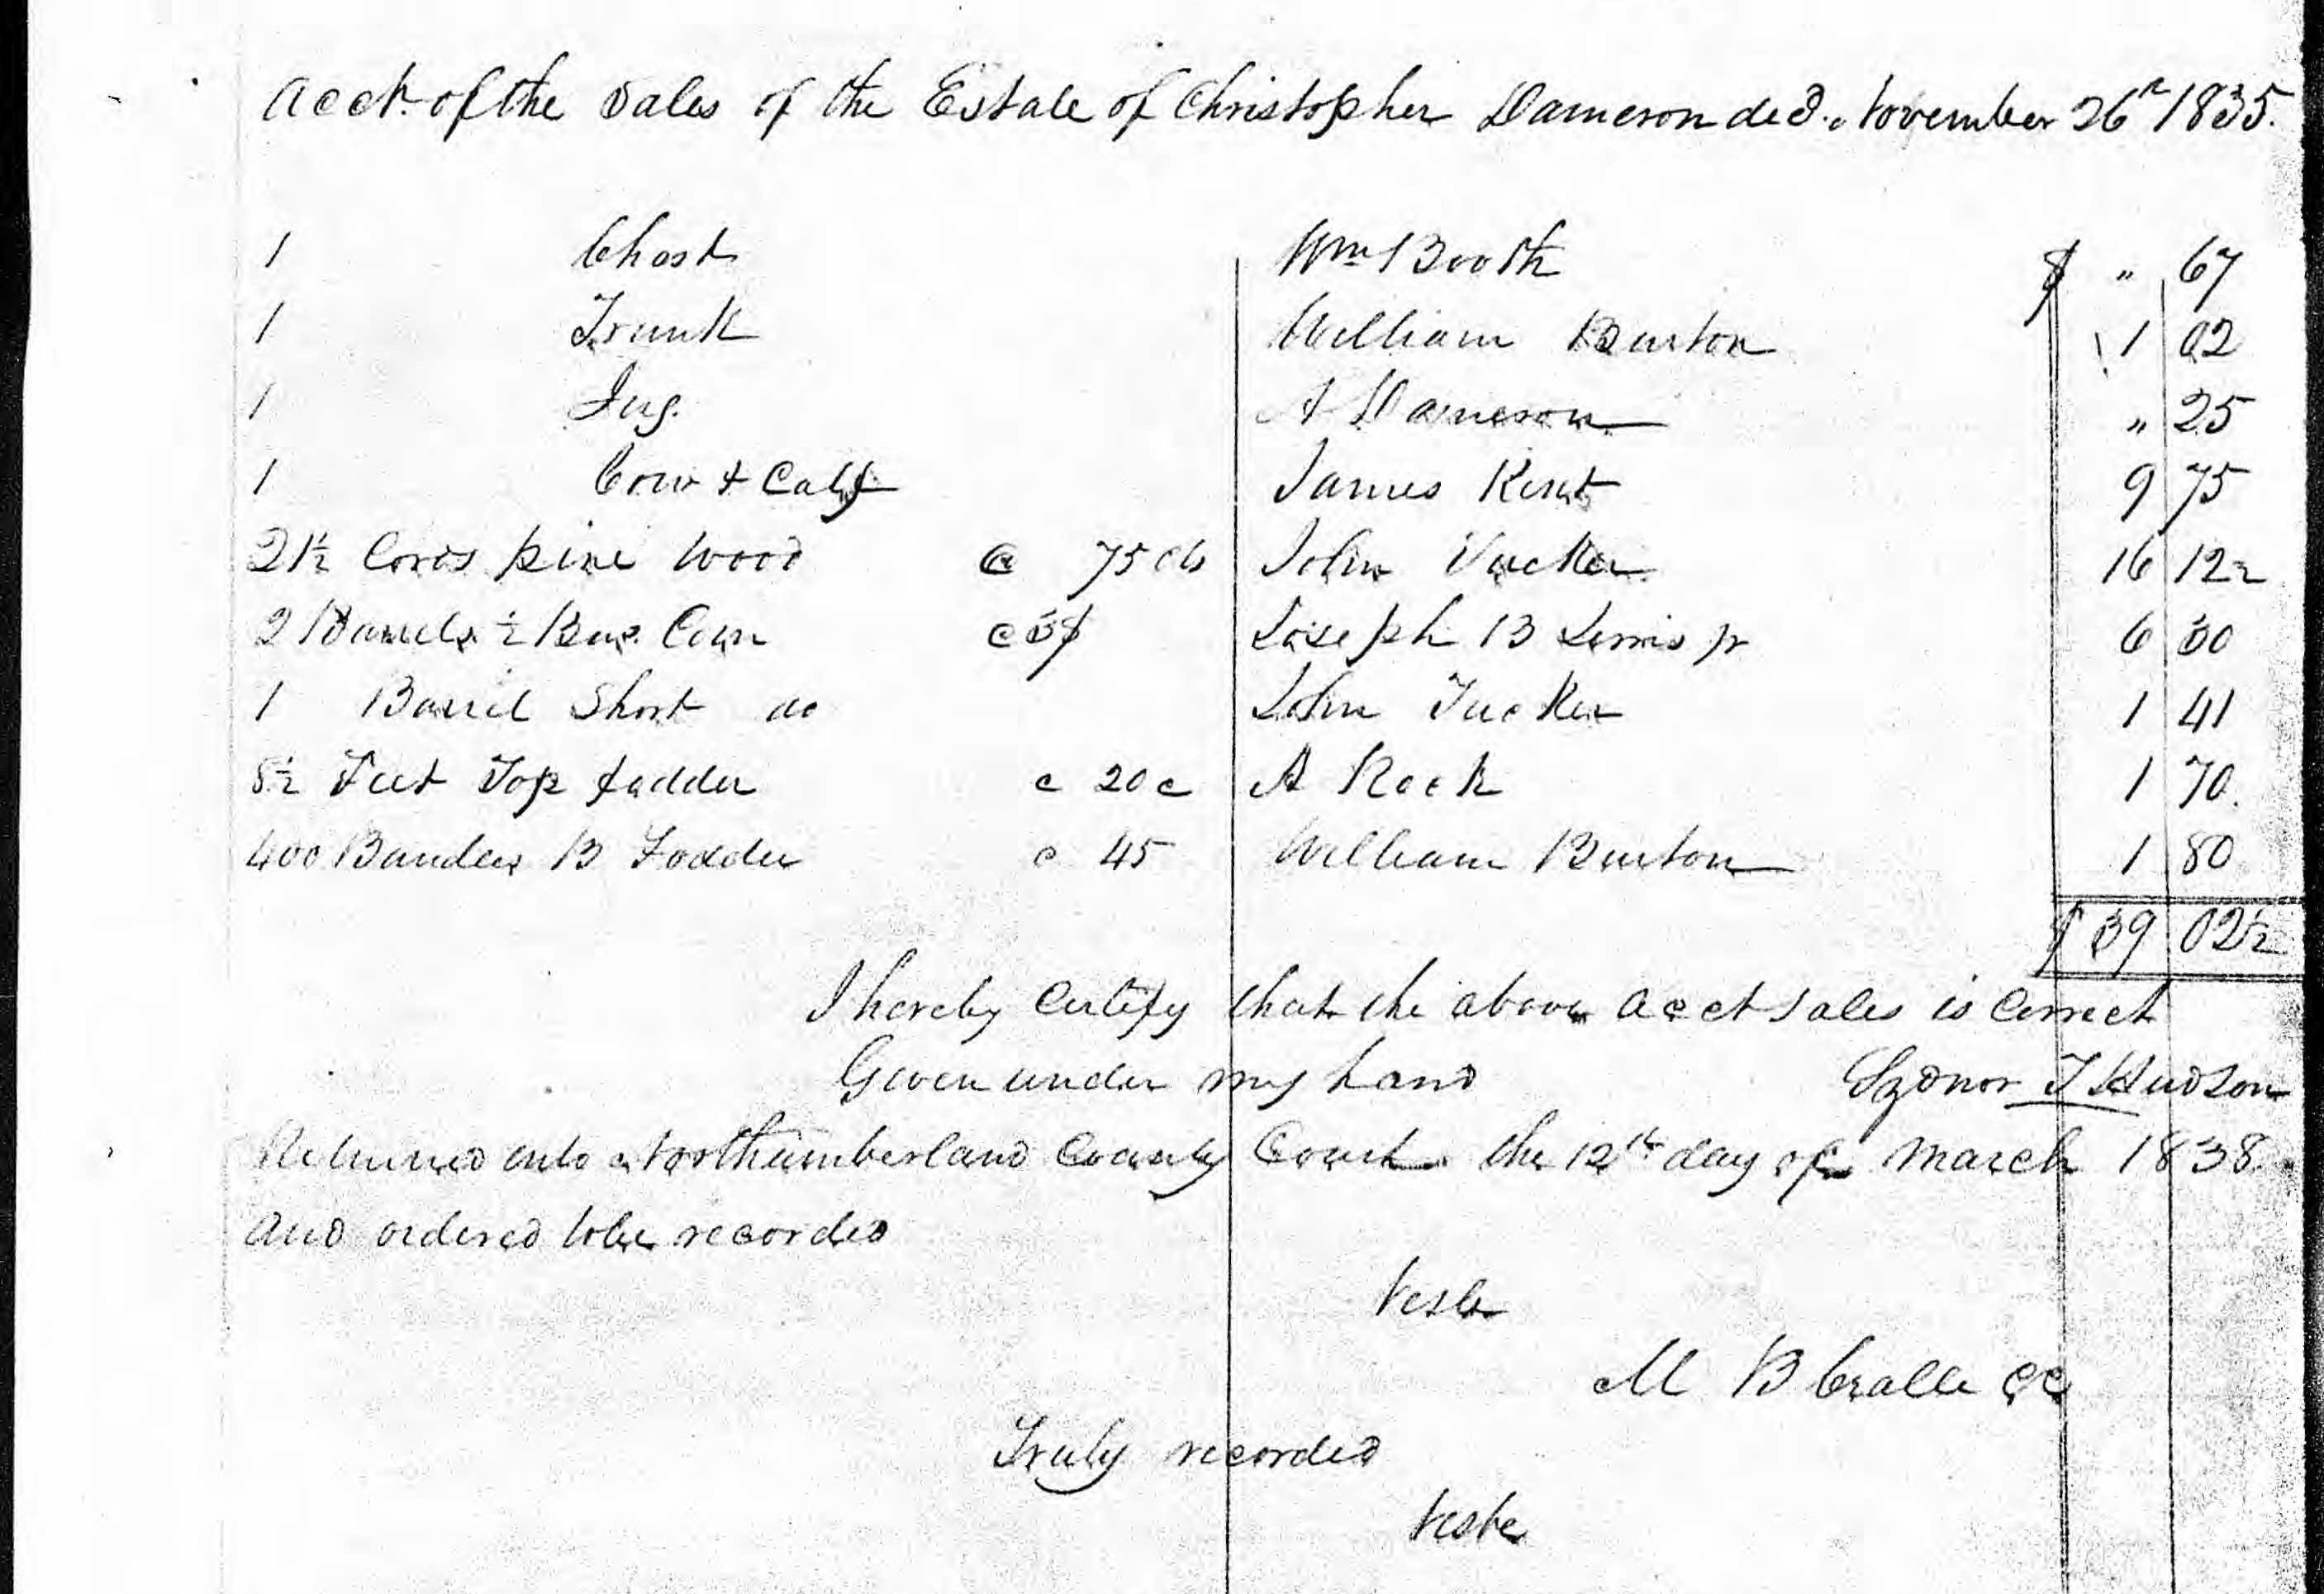 Acct. of the Sales of the Estate of Christopher Dameron decd. November 26th 1835.
1 Chest Wm Booth $ " 67
1 Trunk William Burton 1 02
1 Jug. A Dameron " 25
1 Cow & Calf James Kent 9 75
21½ Cords pine wood @ 75 cts John Tucker 16 12½
2 Barrels ½ Bus. Corn @ 3$ Joseph B Lewis jr 6 30
1 Barrel Short do John Tucker 1 41
8½ Feet Top fodder @ 20 c A Rock 1 70.
400 Bundles B Fodder @ 45 William Burton 1 80
$ 39 02½
I hereby Certify that the above acct sales is Correct
Given under my hand Sydnor T Hudson
Returned into Northumberland County Court the 12th day of March 1838.
and ordered to be recorded
teste
M B Cralle CC
Truly recorded
teste